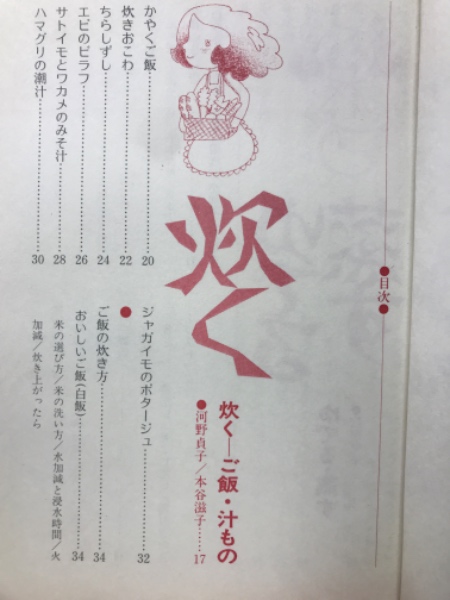 ●目次●
炊く
炊く―ご飯・汁もの
●河野貞子／本谷滋子……17
かやくご飯……20
炊きおこわ……22
ちらしずし……24
エビのピラフ……26
サトイモとワカメのみそ汁……28
ハマグリの潮汁……30
ジャガイモのポタージュ……32
●
ご飯の炊き方……34
おいしいご飯(白飯)……34
米の選び方／米の洗い方／水加減と浸水時間／火
加減／炊き上がったら